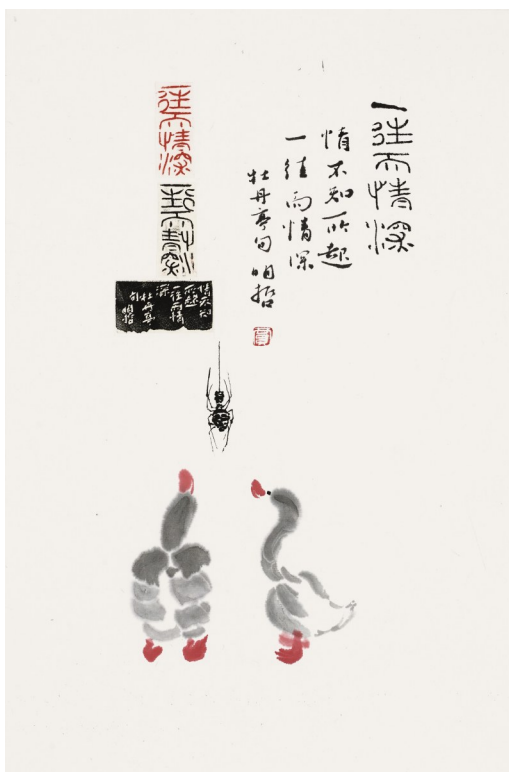 一往而情深
情不知所起
一往而情深
牡丹亭句 明哲
一往而情深
一往而情深
情不知
所起
一往而情
深
牡丹亭
句 明哲